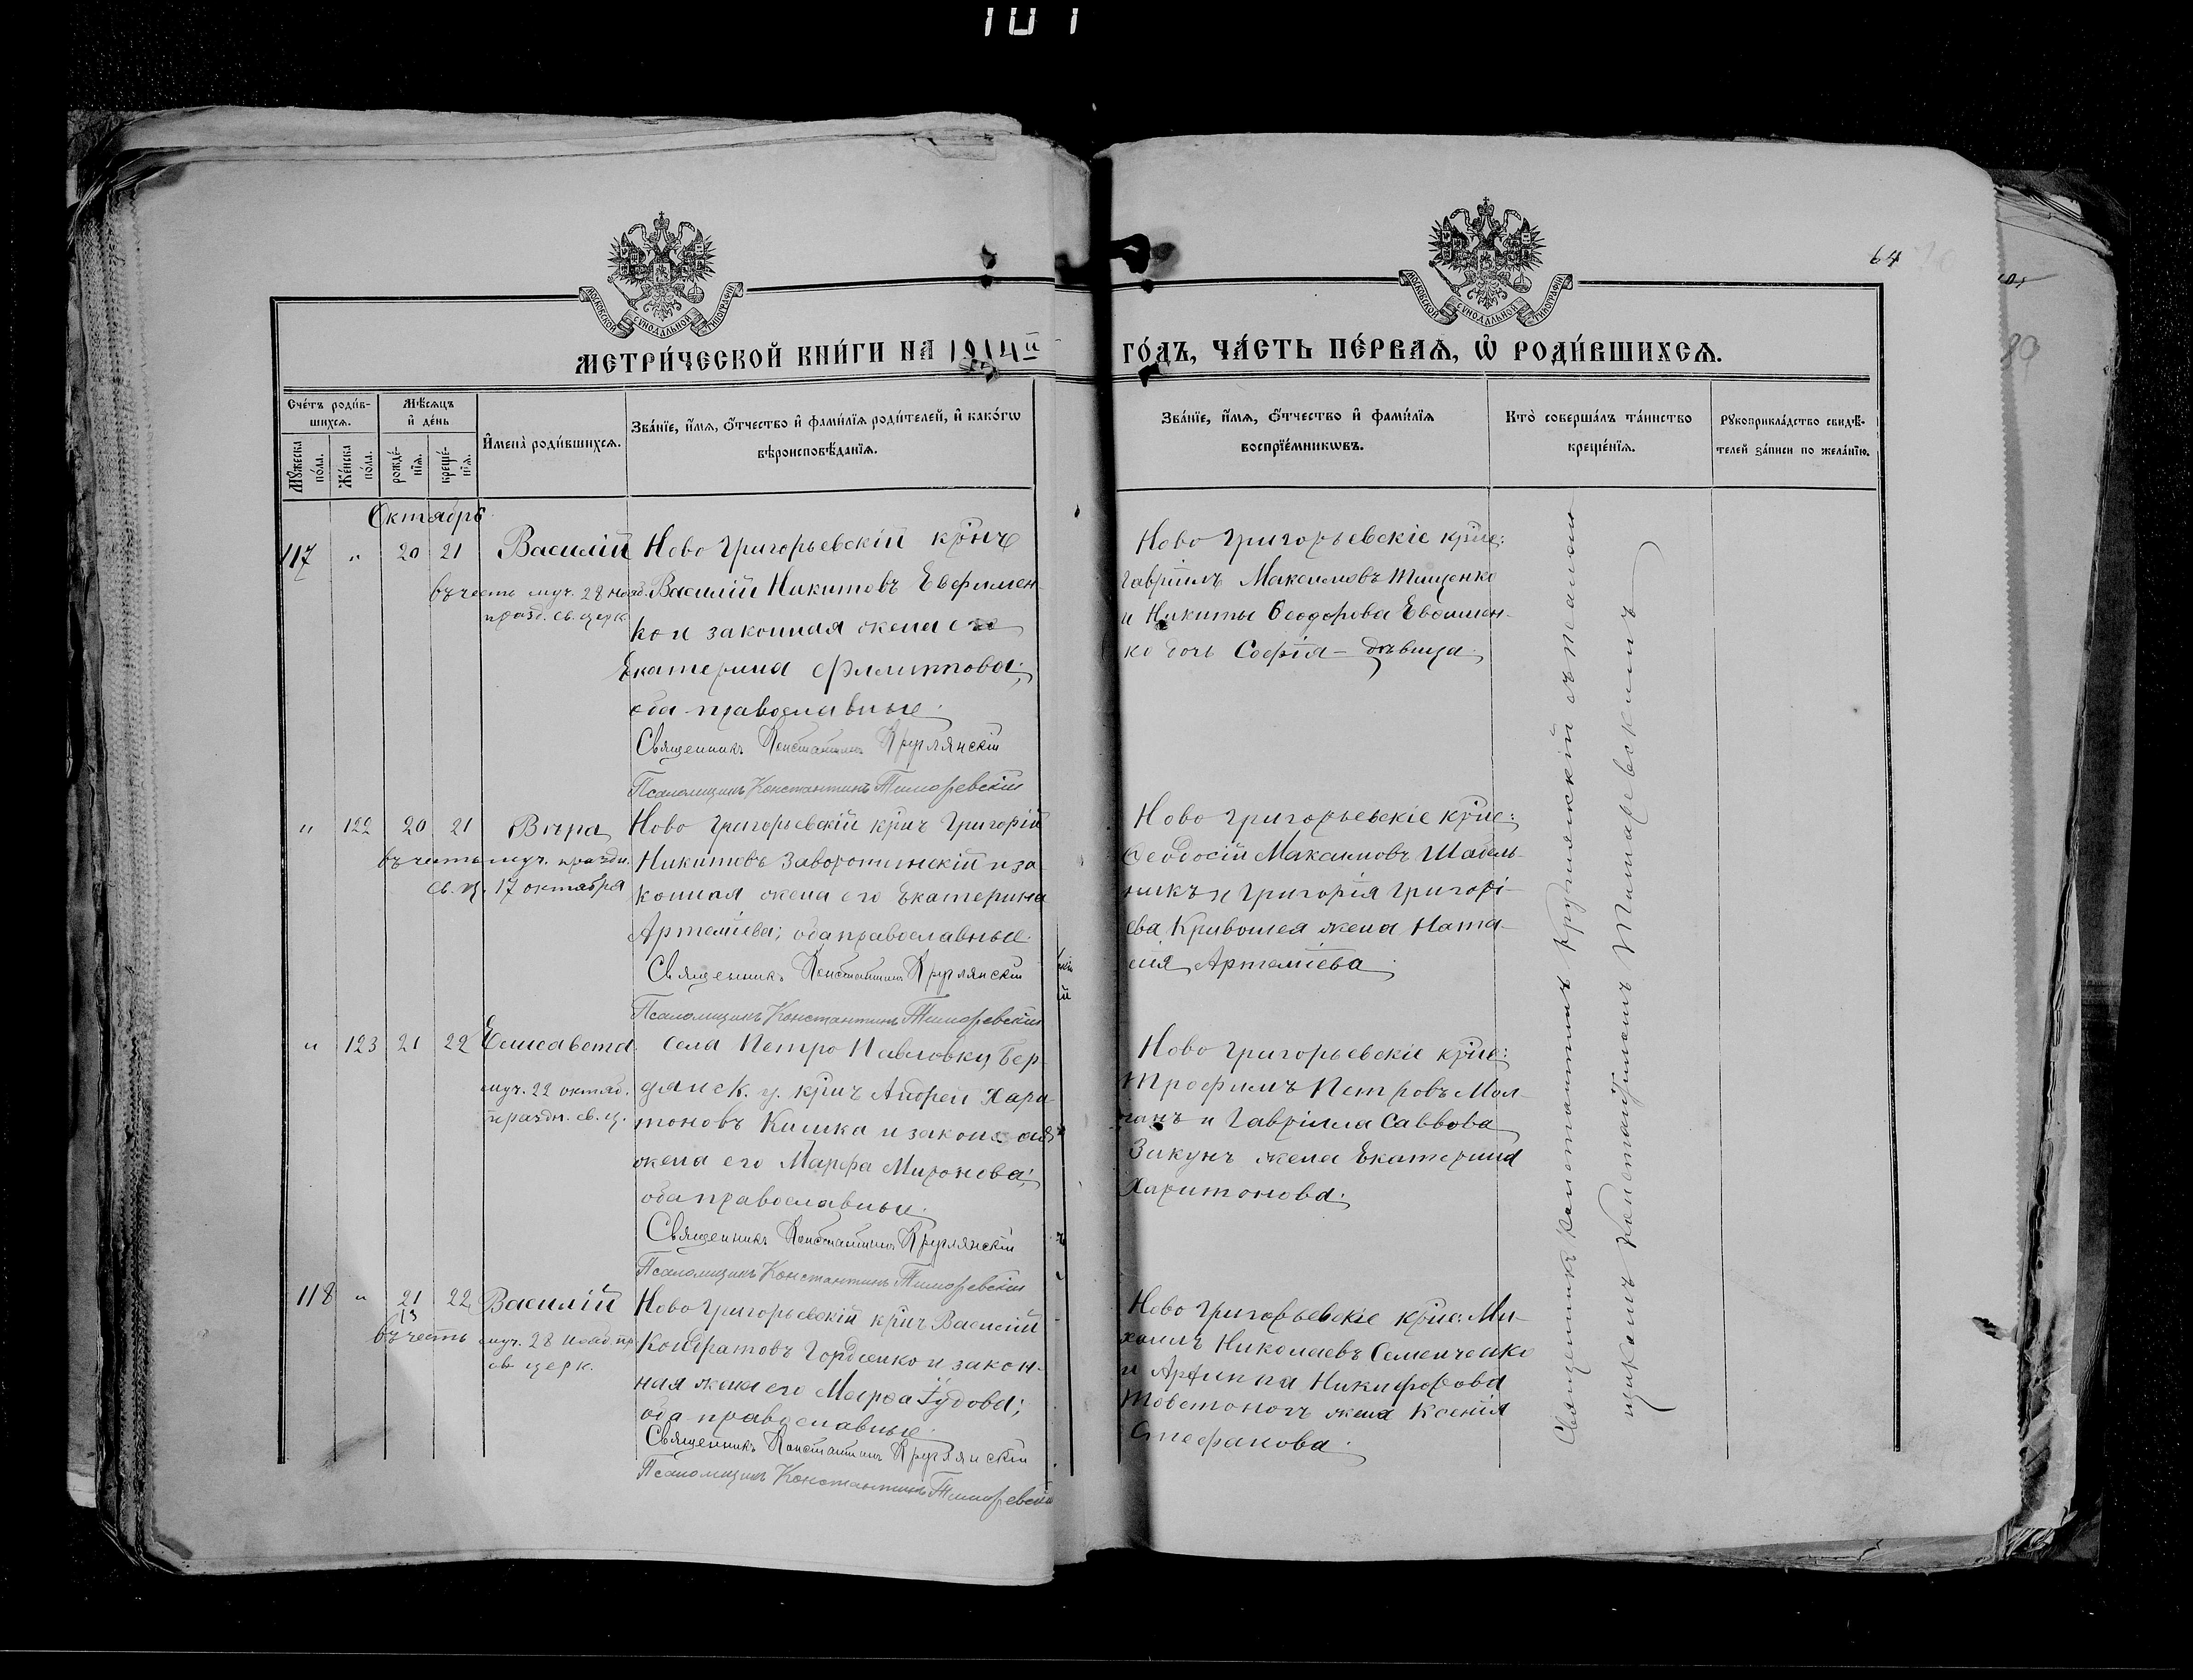 101
64
80
МОСКОВСКОЙ СѴНОДАЛЬНОЙ ТИПОГРАФІИ
МОСКОВСКОЙ СѴНОДАЛЬНОЙ ТИПОГРАФІИ
МЕТРИ́ЧЕСКОЙ КНИ́ГИ НА 1914й ГО́ДЪ, ЧА́СТЬ ПЕ́РВАѦ, Ѡ РОДИ́ВШИХСѦ.
Сче́тъ роди́в-
шихсѧ.
Мꙋ́жеска по́ла.
Же́нска по́ла.
Мѣ́сѧцъ
и҆ де́нь
рожде́-
нїѧ.
креще́-
нїѧ.
И҆мена̀ роди́вшихсѧ.
Зва́нїе, и҆́мѧ, ѻ҆́тчество и҆ фами́лїѧ роди́телей, и҆ како́гѡ
вѣроисповѣ́данїѧ.
Зва́нїе, и҆́мѧ, ѻ҆́тчество и҆ фами́лїѧ
воспрїе́мникѡвъ.
Кто̀ соверша́лъ та́инство
креще́нїѧ.
Рꙋкоприкла́дство свидѣ́-
телей за́писи по жела́нїю.
Октябрь
117 " 20 21 Василій
въ честь муч. 28 нояб.
празд. св. церк.
Ново Григорьевскій крнъ
Василій Никитовъ Евфимен-
ко и законная жена его
Екатерина Филиппова;
оба православные.
Священникъ Константинъ Круглянскій
Псаломщикъ Константинъ Тиморевскій
Ново Григорьевскіе кріне:
Гавріилъ Максимовъ Тищенко
и Никиты Ѳеодорова Евфимен-
ко дочь Софія - дѣвица.
" 122 20 21 Вѣра
въ честь муч. праздн.
св. ц. 17 октября
Ново Григорьевскій крнъ Григорій
Никитовъ Заворотинскій и за
конная жена его Екатерина
Артеміева; оба православные.
Священникъ Константинъ Круглянскій
Псаломщикъ Константинъ Тиморевскій
Ново Григорьевскіе кріне:
Ѳеодосій Максимовъ Шабель-
никъ и Григорія Григорі-
ева Кривошея жена Ната-
лія Артеміева.
" 123 21 22 Елисавета
муч. 22 октяб.
праздн. св. ц.
Села Петро Павловки, Бер-
дянск. у. крнъ Андрей Хари-
тоновъ Кишка и законная
жена его Марфа Миронова;
оба православные.
Священникъ Константинъ Круглянскій
Псаломщикъ Константинъ Тиморевскій
Ново Григорьевскіе кріне:
Трофимъ Петровъ Мол-
чанъ и Гавріила Саввова
Закунъ жена Екатерина
Харитонова.
118 " 21 22 Василій
13
въ честь муч. 28 нояб. пр.
св. церк.
Ново Григорьевскій крнъ Василій
Кондратовъ Гордіенко и закон-
ная жена его Марфа Іудова;
оба православные.
Священникъ Константинъ Круглянскій
Псаломщикъ Константинъ Тиморевскій
Ново Григорьевскіе кріне: Ми-
хаилъ Николаевъ Семенченко
и Архиппа Никифорова
Товстоногъ жена Ксенія
Стефанова.
Священникъ Константинъ Круглянскій съ псалом-
щикомъ Константиномъ Тиморевскимъ